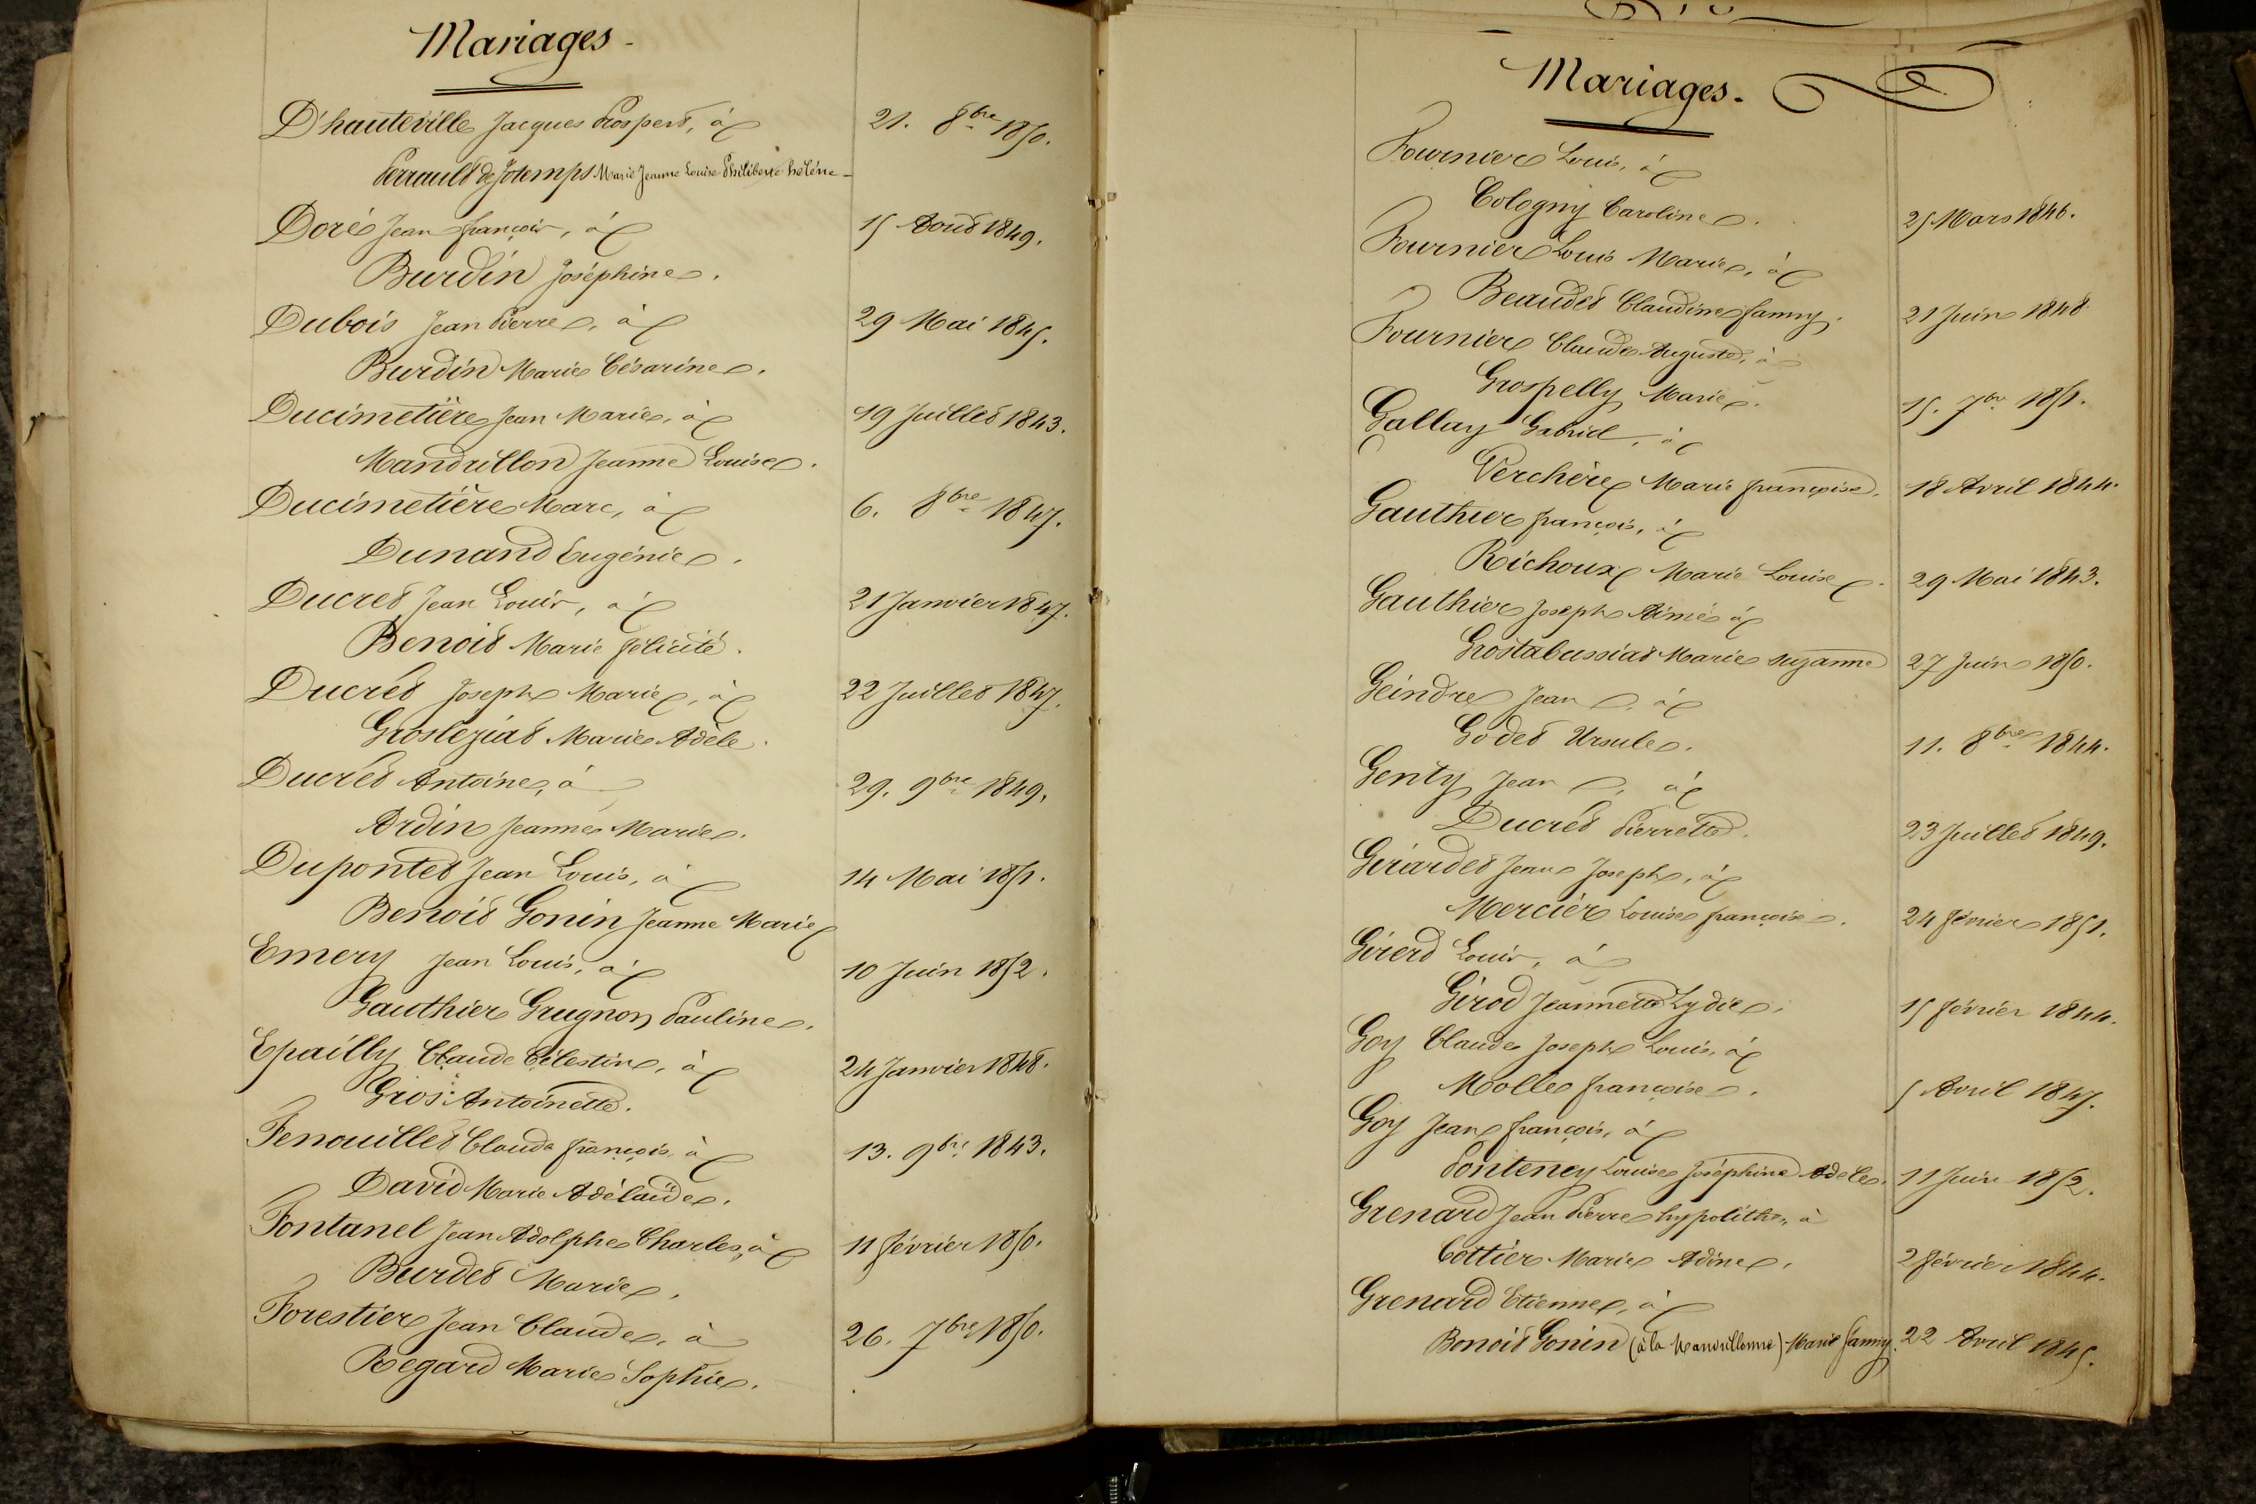 Mariages.
D'hauteville Jacques Prosper, à 21. 8bre 1850.
Perrault de Jotemps Marie Jeanne Louise Philiberte hélène
Doré Jean françois, à 15 Aout 1849.
Burdin Joséphine.
Dubois Jean Pierre, à 29 Mai 1845.
Burdin Marie Césarine.
Ducimetière Jean Marie, à 19 Juillet 1843.
Mandrillon Jeanne Louise.
Ducimetière Marc, à 6. 8bre 1847.
Dunand Eugénie.
Ducret Jean Louis, à 21 Janvier 1847.
Benoit Marie félicité.
Ducrét Joseph Marie, à 22 Juillet 1847.
Grosleziat Marie Adèle.
Ducrét Antoine, à 29. 9bre 1849.
Ardin Jeanne Marie.
Dupontet Jean Louis, à 14 Mai 1851.
Benoit Gonin Jeanne Marie
Emery Jean Louis, à 10 Juin 1852.
Gauthier Grugnon Pauline.
Epailly Claude Célestin, à 24 Janvier 1848.
Gros Antoinette.
Fenouillet Claude françois, à 13. 9bre 1843.
David Marie Adélaïde.
Fontanel Jean Adolphe Charles, à 11 février 1850.
Burdet Marie.
Forestier Jean Claude, à 26. 7bre 1850.
Regard Marie Sophie.
Mariages.
Fournier Louis, à
Cologny Caroline. 25 Mars 1846.
Fournier Louis Marie, à
Beaudet Claudine fanny. 21 Juin 1848.
Fournier Claude Auguste, à
Grospelly Marie. 15. 7bre 1851.
Gallay Gabriel, à
Verchère Marie françoise. 18 Avril 1844.
Gauthier françois, à
Richoux Marie Louise. 29 Mai 1843.
Gauthier Joseph Aimé à
Grostabussiat Marie suzanne 27 Juin 1850.
Geindre Jean, à
Godet Ursule. 11. 8bre 1844.
Genty Jean, à
Ducrét Pierrette. 23 Juillet 1849.
Girardet Jean Joseph, à
Mercier Louise françoise. 24 février 1851.
Girerd Louis, à
Girod Jeannette Lydie. 15 février 1844.
Goy Claude Joseph Louis, à
Molle françoise. 5 Avril 1847.
Goy Jean françois, à
Ponteney Louise Joséphine Adèle. 11 Juin 1852.
Grenard Jean Pierre hypolithe, à
Cottier Marie Adine. 2 février 1844.
Grenard Etienne, à
Benoit Gonin (à la Mandrillonne) Marie fanny. 22 Avril 1845.